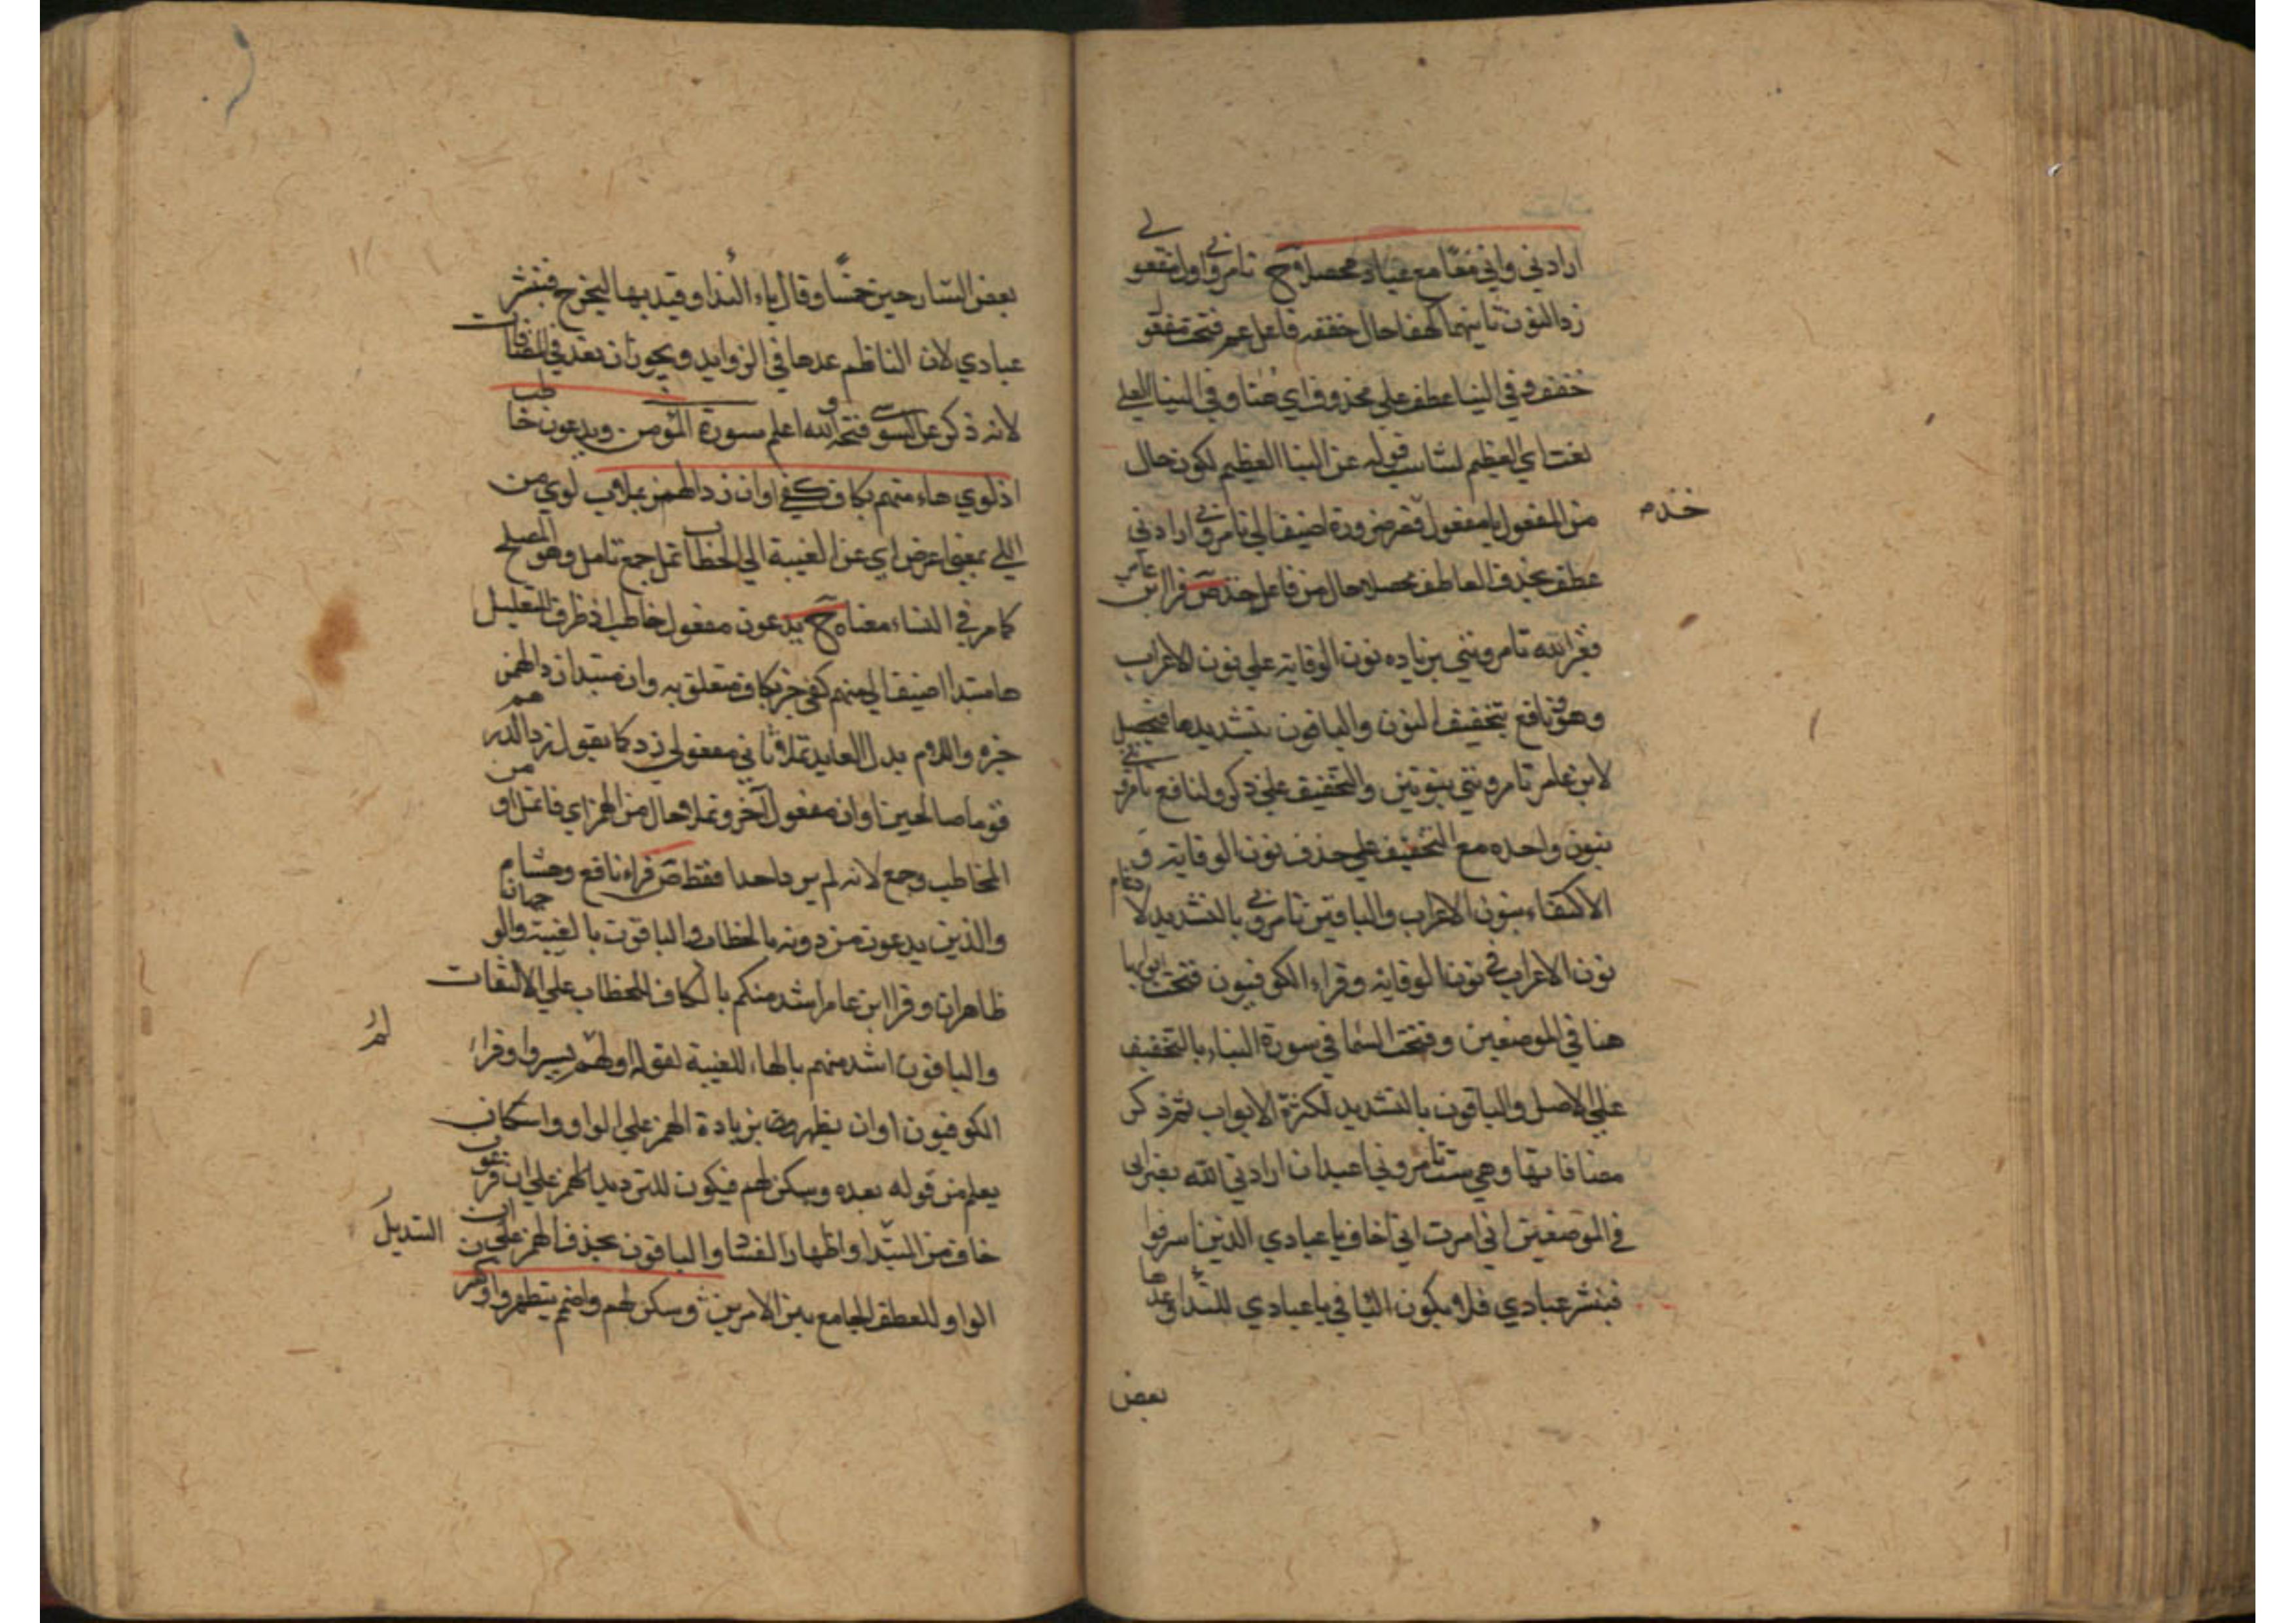 ارادني واني معا مع عبادي محصلا ح تامروني اولى مفعولي
زد النون ثانيهما كهفا حال خففه فاعل عم فتحت مفعول
خفف وفي النبا عطف علي محذوف اي هنا وفي النبا العلي
نعت اي العظيم لتناسب قوله عن النبا العظيم لكون حال
من المفعول يا مفعول فقصر ضرورة اضيف الي تامروني ارادني
خذ م
عطف بحذف العاطف محصلا حال من فاعل خذ ص قرا ابن عامر
فغير الله تامرونني بزياده نون الوقاية علي نون الاعراب
وهو ونافع بتخفيف النون والباقون بتشديدها فيحصل
لابن عامر تامرونني بنونين والتخفيف علي ذكر ولنافع تامروني
بنون واحده مع التخفيف علي حذف نون الوقاية و
الاكتفاء بنون الاعراب والباقين تامروني بالتشديد لادغام
نون الاعراب في نون الوقاية وقراء الكوفيون فتحت ابوابها
هنا في الموضعين وفتحت السما في سورة النباء بالتخفيف
علي الاصل والباقون بالتشديد لكثرة الابواب ثم ذكر
مضافاتها وهي ست تامروني اعبد ان ارادني الله بضر اني
في الموضعين اني امرت اني اخاف يا عبادي الذين اسرفوا
فبشر عبادي فلا يكون الثا في يا عبادي للنداء وعدها
بعض
بعض الشارحين خمسا وقال ياء النداء وقيد بها ليخرج فبشر
عبادي لان الناظم عدها في الزوايد ويجوز ان يعد في المضافات
لانه ذكر عن السوسي فتحه والله اعلم سورة المؤمن ويدعون خاطب
اذ لوي هاء منهم بكاف كفي او ان زد الهمز بملا ب لوي من
اللي بمعني اعرض اي عن الغيبة الي الخطاب ثمل جمع ثامل وهو المصلح
كما مر في النساء معناه ح يدعون مفعول خاطب اذ ظرف التعليل
ها مبتدا اضيف الي منهم كفي خبر بكاف متعلق به وان مبتدا زد الهمز
خبره واللام بدل العايد ثملا ثاني مفعولي زد كما يقول زد الدرهم
قوما صالحين او ان مفعول اخر وثملا حال من الهمز اي فا ثملا و من
المخاطب وجمع لانه لم يرد واحدا فقط ص قراء نافع وهشام
والذين يدعون من دونه بالخطاب والباقون بالغيبة والوجهان
ظاهران وقرا ابن عامر اشد منكم بالكاف للخطاب علي الالتفات
والباقون اشد منهم بالهاء للغيبة لقوله اولم يسيروا وقراء
لم
الكوفيون او ان يظهر وهنا بزيادة الهمز علي الواو واسكان
يعلم من قوله بعده وسكن لهم فيكون للترديد الهمز علي ان فرعون
خاف من التبديل او اظهار الفساد والباقون بحذف الهمز علي ان
التبديل
الواو للعطف الجامع بين الامرين وسكن لهم واضمم يظهر واكسر